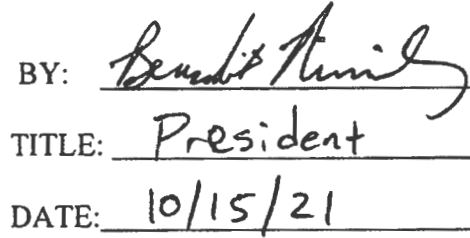 BY:
TITLE: President
DATE: 10/15/21